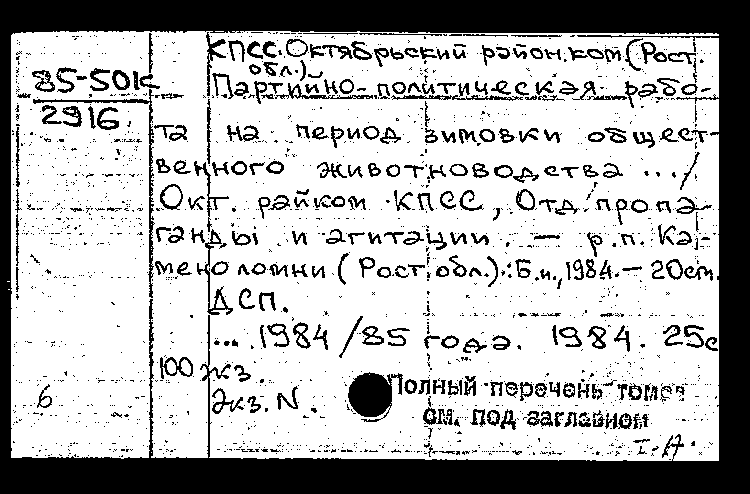 КПСС. Октябрьский район. ком. (Рост.
обл.)
85-50к
Партийно-политическая рабо-
2916
та на период зимовки общест-
венного животноводства .../
Окт. райком КПСС, Отд. пропа-
ганды и агитации. — р.п. Ка-
меноломни (Рост. обл.): Б.и., 1984. — 20см.
ДСП.
... 1984/85 года. 1984. 25с
100 экз.
6
Экз. N .
Полный перечень томов
см. под заглавием